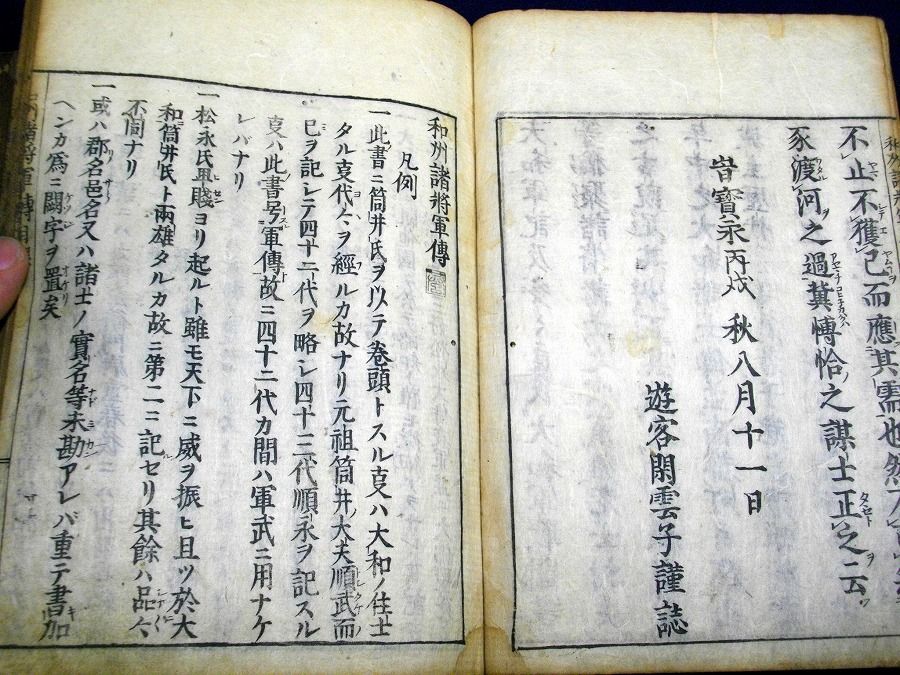 不止不獲已而應其需也然
豕渡河之過冀愽恰之謀士正之云
旹寶永丙戌秋八月十一日
遊客閑雲子謹誌
和州諸將軍傳
凡例
一此書ニ筒井氏ヲ以テ卷頭トスル亥ハ大和ノ住士
タル亥代々ヲ經ルカ故ナリ元祖筒井大夫順武而
已ヲ記シテ四十二代ヲ略シ四十三代順永ヲ記スル
亥ハ此書号軍傳故ニ四十二代カ間ハ軍武ニ用ナケ
レバナリ
一松永氏卑賤ヨリ起ルト雖モ天下ニ威ヲ振ヒ且ツ於大
和筒井氏ト兩雄タルカ故ニ第二ニ記セリ其餘ハ品々
不同ナリ
一或ハ郡名邑名又ハ諸士ノ實名等未勘アレバ重テ書加
ヘンカ爲ニ闕字ヲ置矣